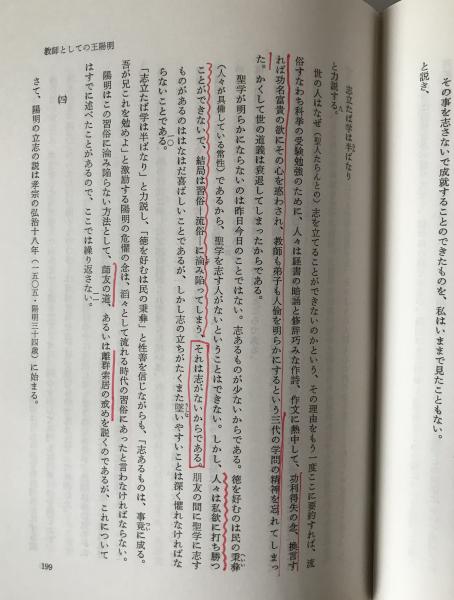 その事を志さないで成就することのできたものを、私はいままで見たこともない。
と説き、
志立たば学は半ばなり
と力説する。
世の人はなぜ（聖人たらんとの）志を立てることができないのかという、その理由をもう一度ここに要約すれば、流
俗すなわち科挙の受験勉強のために、人々は経書の暗誦と修辞巧みな作詩、作文に熱中して、功利得失の念、換言す
れば功名富貴の欲にその心を惑わされ、教師も弟子も人倫を明らかにするという三代の学問の精神を忘れてしまっ
た。かくして世の道義は衰退してしまったからである。
聖学が明らかにならないのは昨日今日のことではない。志あるものが少ないからである。徳を好むのは民の秉彝
（人々が具備している常性）であるから、聖学を志す人がないということはできない。しかし、人々は私欲に打ち勝つ
ことができないで、結局は習俗―流俗―に淪み陥ってしまう。それは志がないからである。朋友の間に聖学に志す
ものがあるのははなはだ喜ばしいことであるが、しかし志の立ちがたくまた墜いやすいことは深く懼れなければな
らないことである。
「志立たば学は半ばなり」と力説し、「徳を好むは民の秉彝」と性善を信じながらも、「志あるものは、事竟に成る。
吾が兄これを勉めよ」と激励する陽明の危懼の念は、滔々として流れる時代の習俗にあったと言わなければならない。
陽明はこの習俗に淪み陥らない方法として、師友の道、あるいは離群索居の戒めを説くのであるが、これについて
はすでに述べたことがあるので、ここでは繰り返さない。
四
さて、陽明の立志の説は孝宗の弘治十八年（一五〇五・陽明三十四歳）に始まる。
教師としての王陽明
199